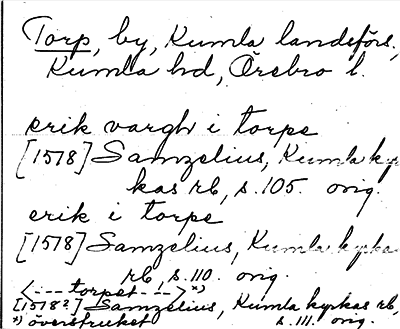 Torp, by, Kumla landsförs.,
Kumla hd, Örebro l.
erik vargh i torpe
[1578] Samzelius, Kumla kyr
kas rb, s. 105. orig.
erik i torpe
[1578] Samzelius, Kumla kyrkas
rb s. 110. orig.
<--- torpet ---> *)
[1578?] Samzelius, Kumla kyrkas rb,
*) överstruket s. 111. orig.